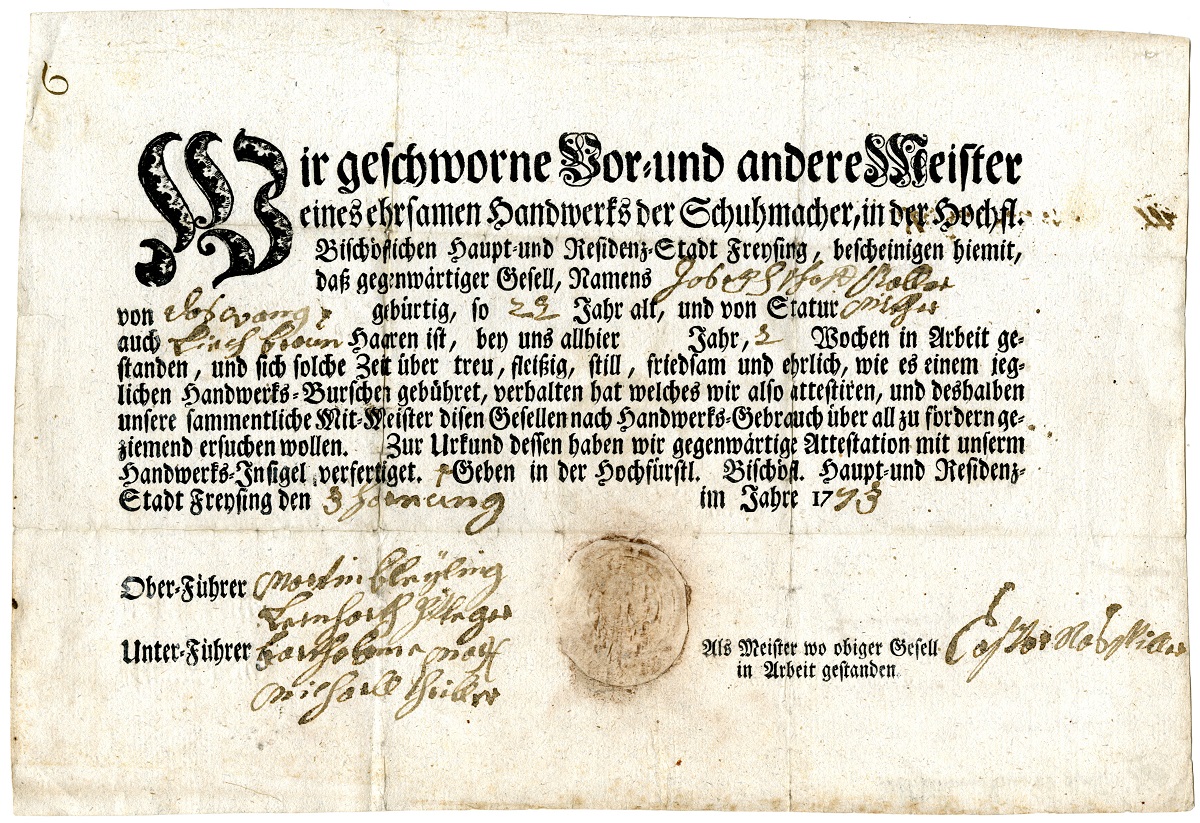 6
Wir geschworne Vor-und andere Meister
eines ehrsamen Handwerks der Schuhmacher, in der Hochfl.
Bischöflichen Haupt-und Residenz-Stadt Freysing, bescheinigen hiemit,
daß gegenwärtiger Gesell, Namens Joseph
von gebürtig, so 22 Jahr alt, und von Statur
auch braun Haaren ist, bey uns allhier Jahr, 2 Wochen in Arbeit ge-
standen, und sich solche Zeit über treu, fleißig, still, friedsam und ehrlich, wie es einem jeg-
lichen Handwerks-Burschen gebühret, verhalten hat welches wir also attestiren, und deshalben
unsere sammentliche Mit-Meister disen Gesellen nach Handwerks-Gebrauch über all zu fördern ge-
ziemend ersuchen wollen. Zur Urkund dessen haben wir gegenwärtige Attestation mit unserm
Handwerks-Insigel verfertiget. Geben in der Hochfürstl. Bischöfl. Haupt-und Residenz-
Stadt Freysing den 3 hornung im Jahre 1793
Ober-Führer Martin
Unter-Führer
Michael
Als Meister wo obiger Gesell
in Arbeit gestanden.